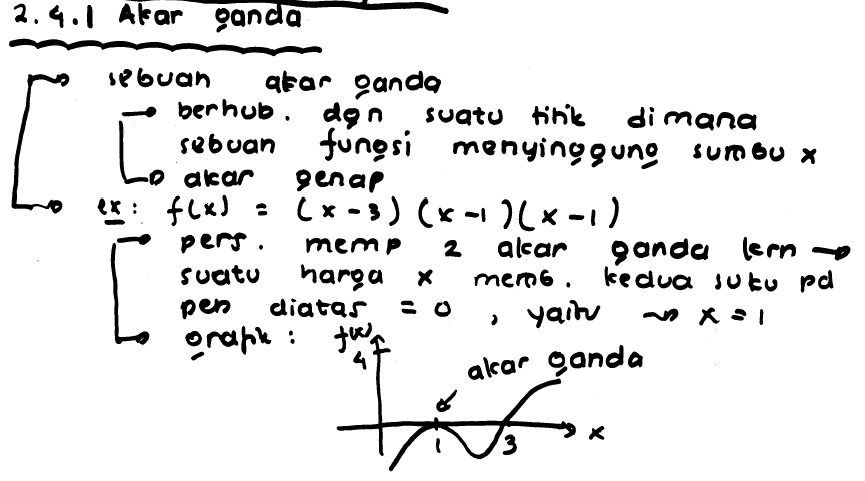 2.4.1 Akar ganda
sebuah akar ganda
berhub. dgn suatu titik dimana
sebuah fungsi menyinggung sumbu x
akar genap
ex: f(x) = (x-3)(x-1)(x-1)
pers. memp 2 akar ganda krn
suatu harga x memb. kedua suku pd
pers diatas = 0, yaitu x = 1
grapik: f(x)
4 akar ganda
1 3 x